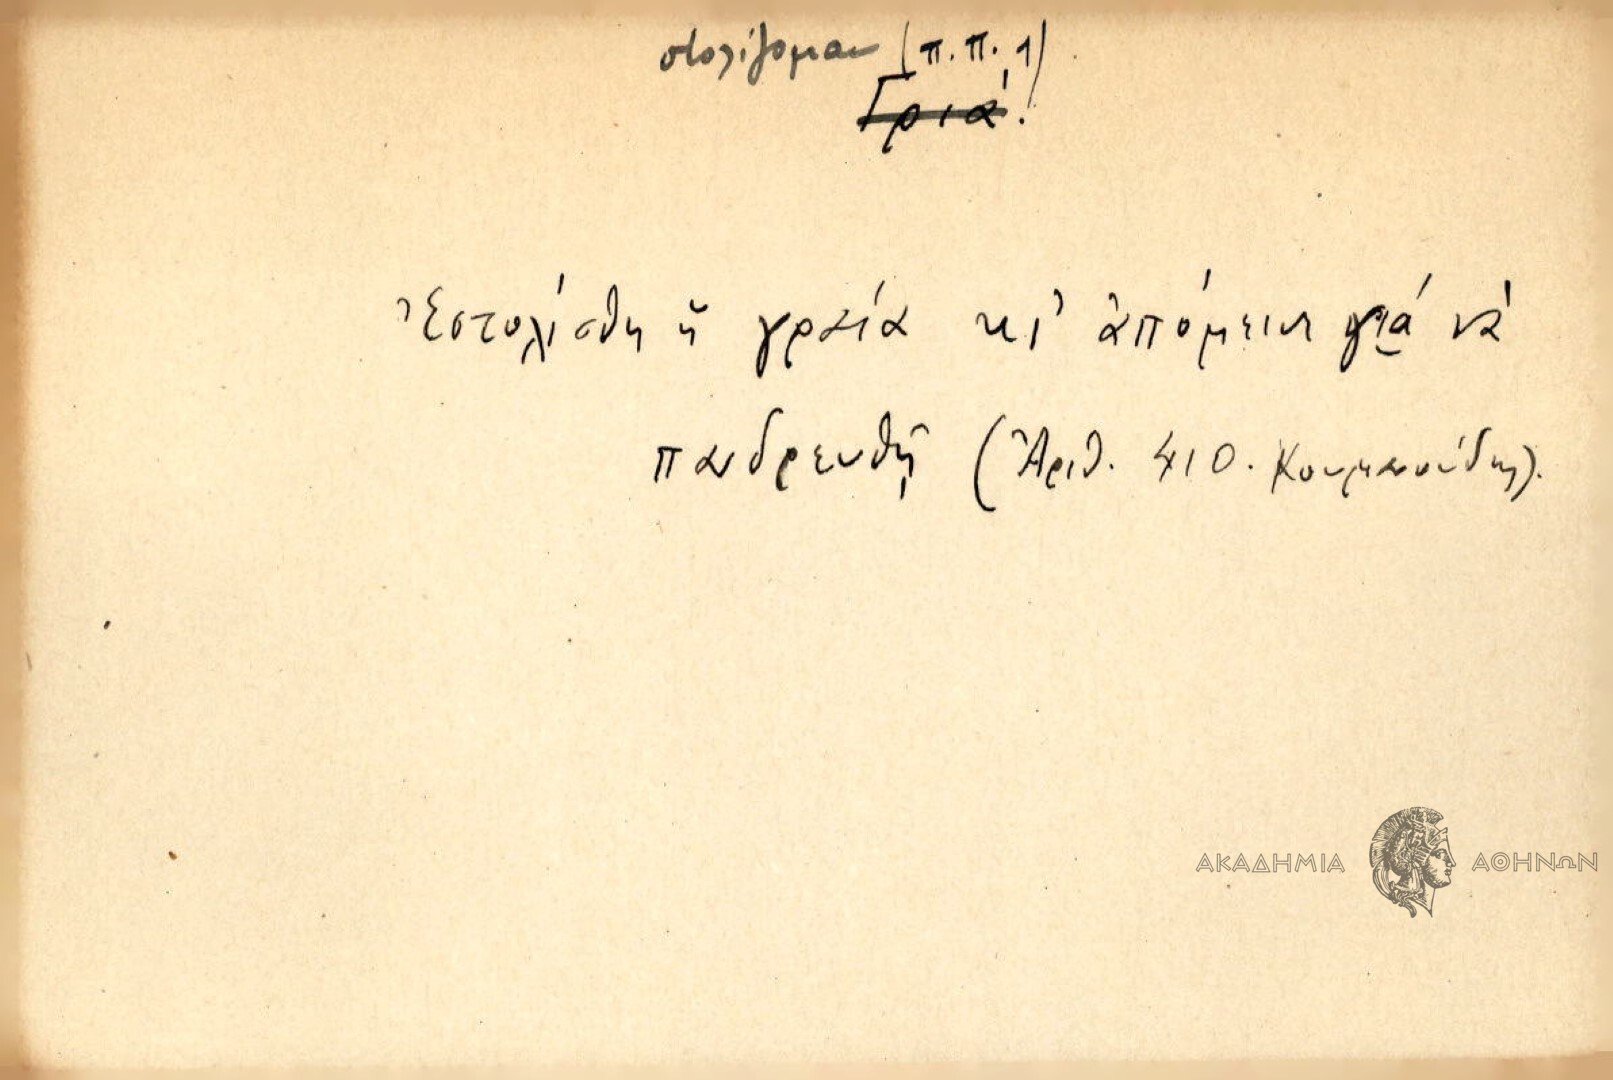 στολίζομαι (π.π. 1)
Γριά!
Ἐστολίσθη ἡ γραία κι' ἀπόμεινε γιά νὰ
πανδρευθῇ (Ἀριθ. 410. Κουμανούδης).
ΑΚΑΔΗΜΙΑ ΑΘΗΝΩΝ